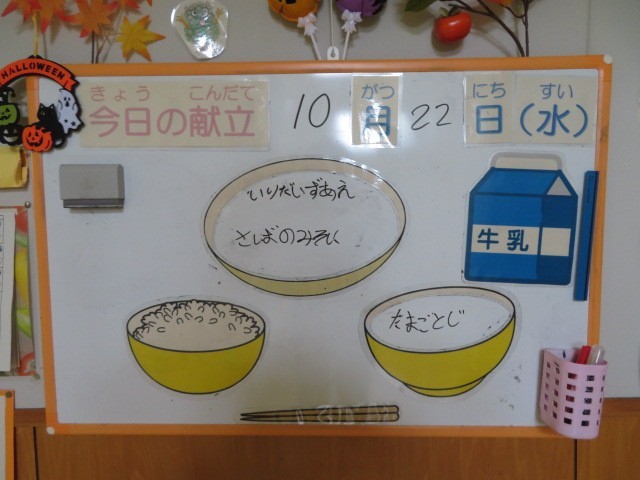 HALLOWEEN
きょう こんだて がつ にち すい
今日の献立 10月22日(水)
いりだいずあえ
さばのみそに
牛乳
たまごとじ